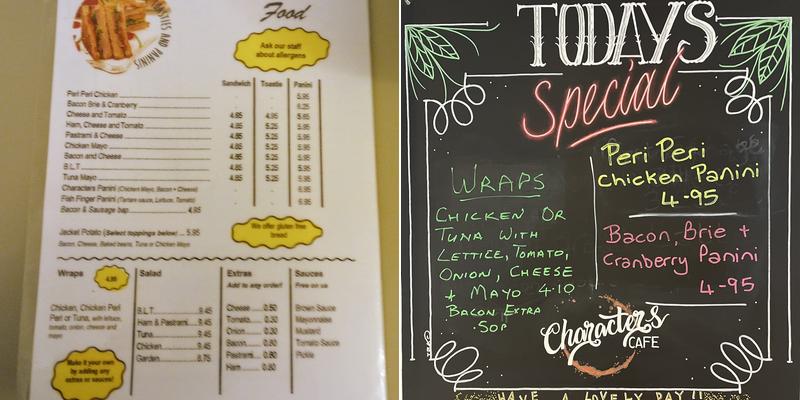 TOASTIES AND PANINIS
Food
Ask our staff
about allergens
Sandwich Toastie Panini
Peri Peri Chicken - - 5.95
Bacon Brie & Cranberry - - 6.25
Cheese and Tomato 4.85 4.95 5.95
Ham, Cheese and Tomato 4.85 5.25 5.95
Pastrami & Cheese 4.85 5.25 5.95
Chicken Mayo 4.85 5.25 5.95
Bacon and Cheese 4.85 5.25 5.95
B.L.T 4.85 5.25 5.95
Tuna Mayo 4.85 5.25 5.95
Characters Panini (Chicken Mayo, Bacon + Cheese) 6.95
Fish Finger Panini (Tartare sauce, Lettuce, Tomato) 6.95
Bacon & Sausage bap 4.95
We offer gluten free
bread
Jacket Potato (Select toppings below) ... 5.95
Bacon, Cheese, Baked beans, Tuna or Chicken Mayo
Wraps 4.95
Chicken, Chicken Peri
Peri or Tuna, with lettuce,
tomato, onion, cheese and
mayo
Make it your own
by adding any
extras or sauces!
Salad
B.L.T. 9.45
Ham & Pastrami 9.45
Tuna 9.45
Chicken 9.45
Garden 8.75
Extras
Add to any order!
Cheese 0.50
Tomato 0.30
Onion 0.30
Bacon 0.80
Pastrami 0.80
Ham 0.80
Sauces
Free on us
Brown Sauce
Mayonnaise
Mustard
Tomato Sauce
Pickle
TODAYS
Special
WRAPS
CHICKEN OR
TUNA WITH
LETTICE, TOMATO,
ONION, CHEESE
+ MAYO 4.10
BACON EXTRA
.50P
Peri Peri
Chicken Panini
4-95
Bacon, Brie +
Cranberry Panini
4-95
Characters
CAFE
HAVE A LOVELY DAY!!